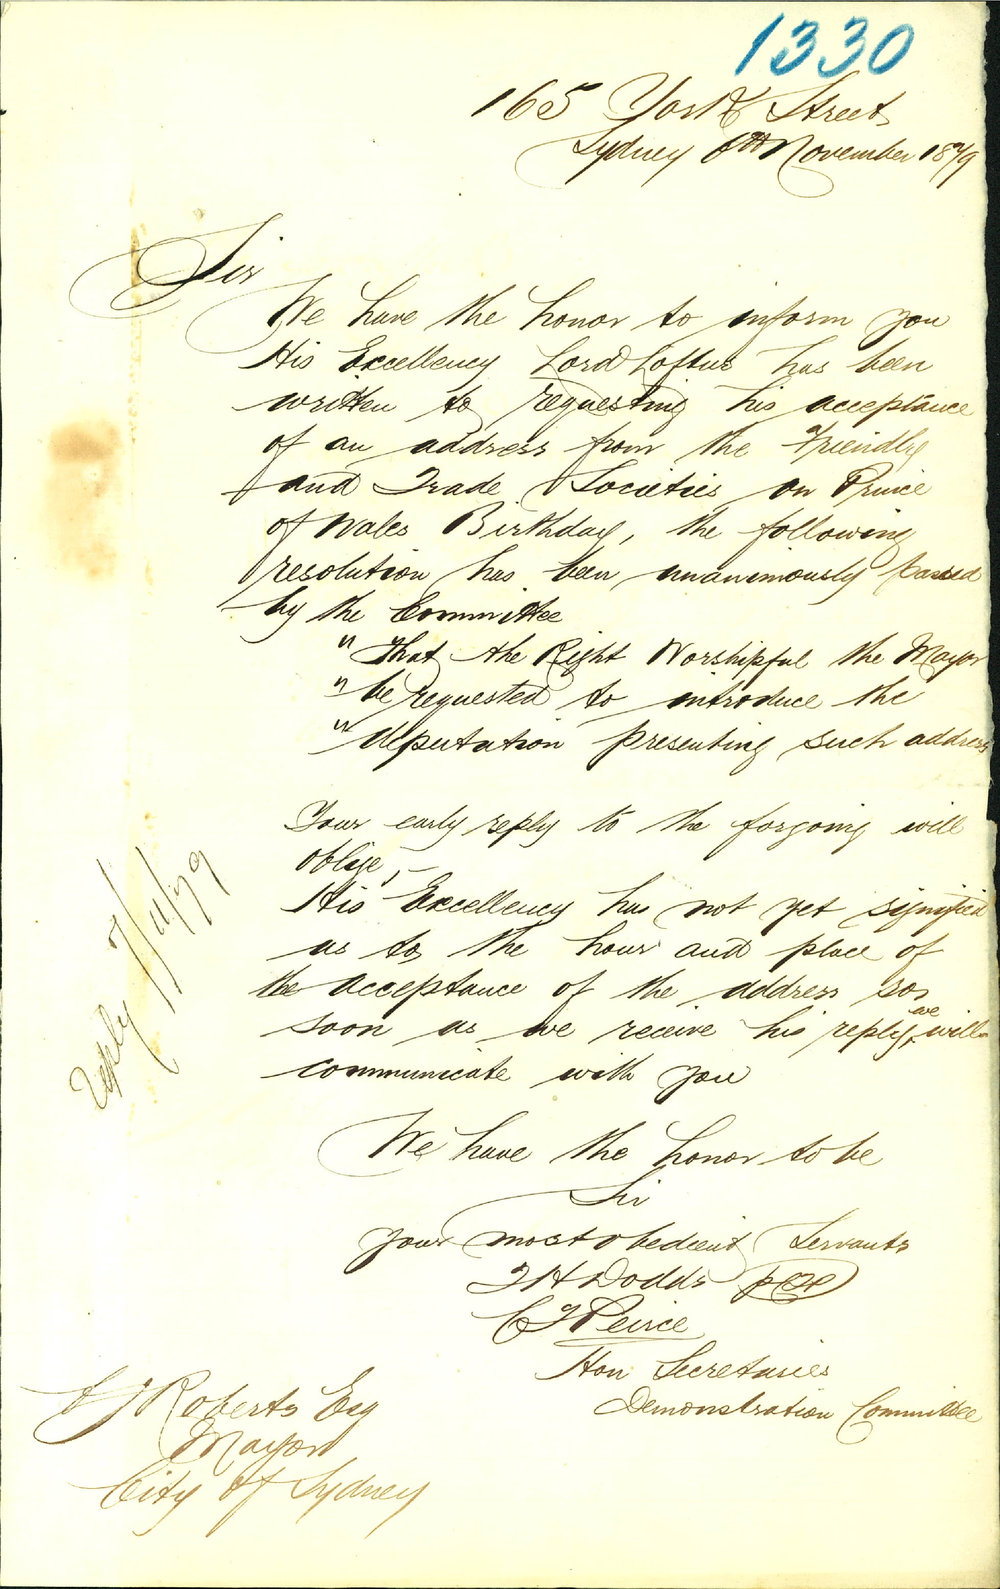 1330
165 York Street
Sydney 6th November 1879
Sir
We have the honor to inform you
His Excellency Lord Loftus has been
written to requesting his acceptance
of an address from the Friendly
and Trade Societies on Prince
of Wales Birthday, the following
resolution has been unanimously passed
by the Committee
"That the Right Worshipful the Mayor
"be requested to introduce the
"deputation presenting such address
Your early reply to the forgoing will
oblige,-
His Excellency has not yet signified
as to the hour and place of
the acceptance of the address so
soon as we receive his reply, we will
communicate with you
Reply 7/11/79
We have the honor to be
Sir
your most obedient Servants
T H Dodds
C J Peirce
Hon Secretaries
Demonstration Committee
Roberts Esq
Mayor
City of Sydney